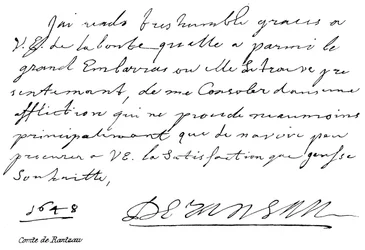 Jai rendu tres humble graces a
V.E. de la bonte quelle a parmi le
grand Embarras ou elle se trouve pre
sentement, de me Consoler dans une
affliction qui ne procede neaumoins
principalement que de navoir peu
procurer a VE. la satisfaction que jeusse
Souhaitte,
1648
Comte de Rantzau